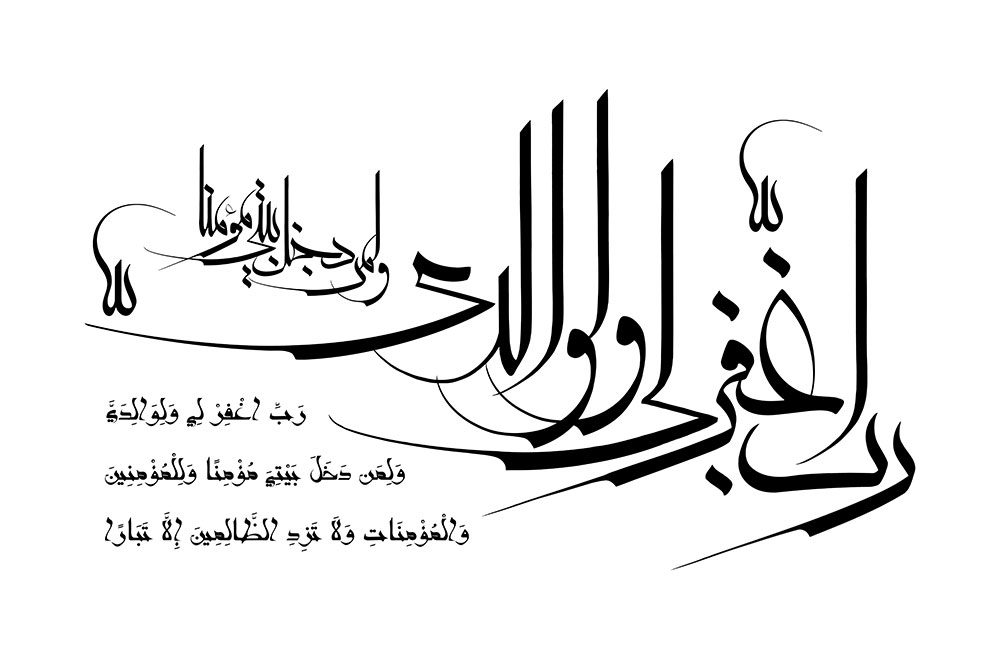 رب اغفر لي ولوالدي
ولمن دخل بيتي مؤمنا
لله
لله
رَبِّ اغْفِرْ لِي وَلِوَالِدَيَّ
وَلِمَن دَخَلَ بَيْتِيَ مُؤْمِنًا وَلِلْمُؤْمِنِينَ
وَالْمُؤْمِنَاتِ وَلَا تَزِدِ الظَّالِمِينَ إِلَّا تَبَارًا